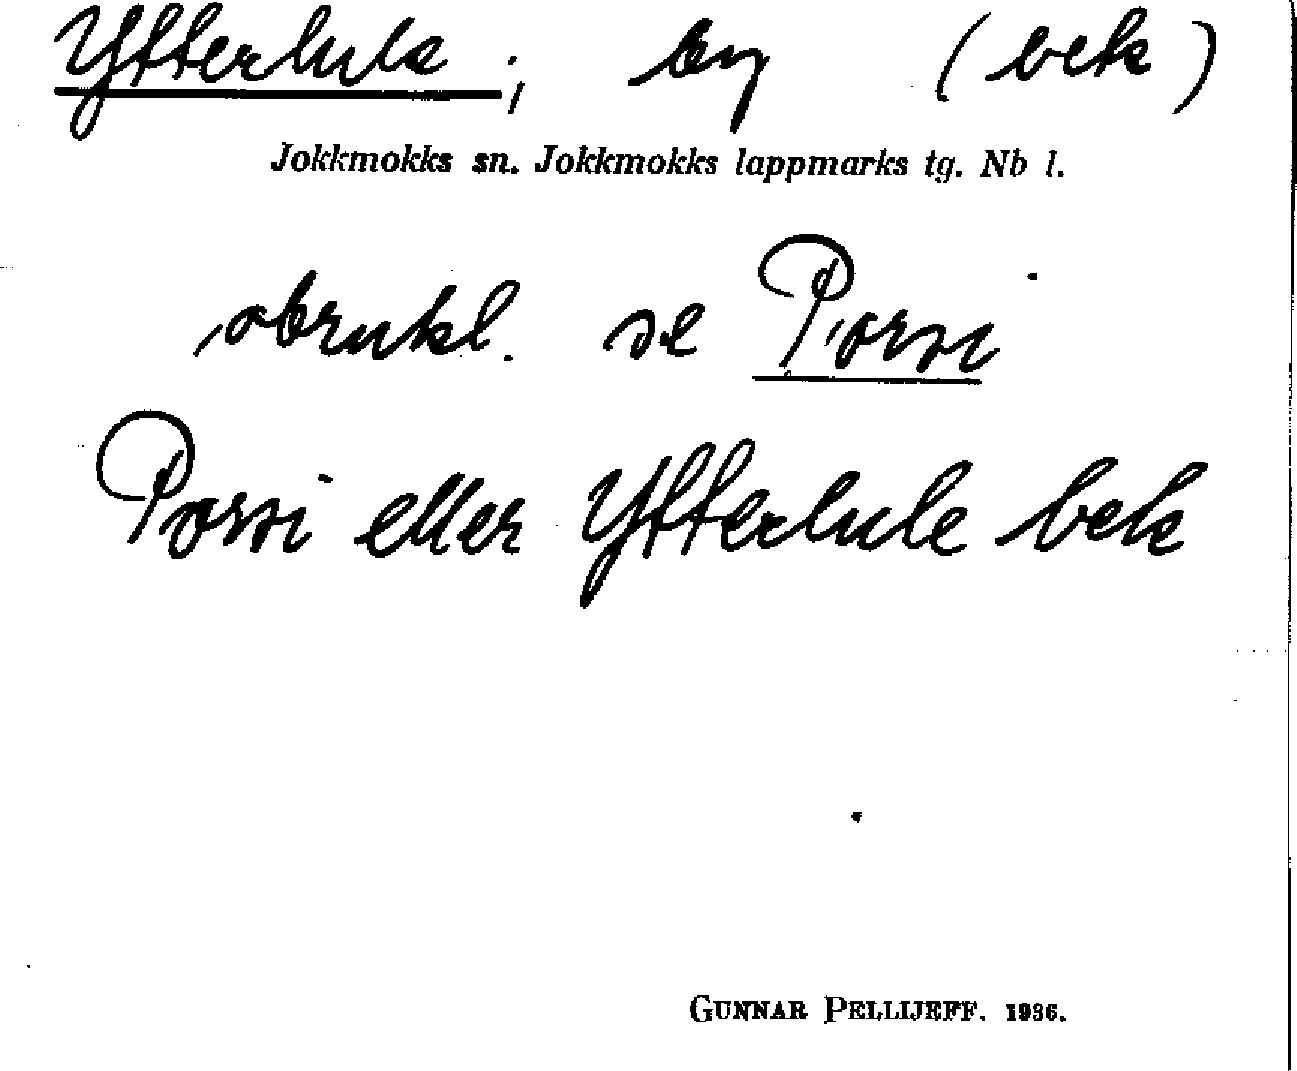 Ytterlule, by (bek)
Jokkmokks sn. Jokkmokks lappmarks tg. Nb l.
obrukl. se Porsi
Porsi eller Ytterlule bek
GUNNAR PELLIJEFF. 1936.